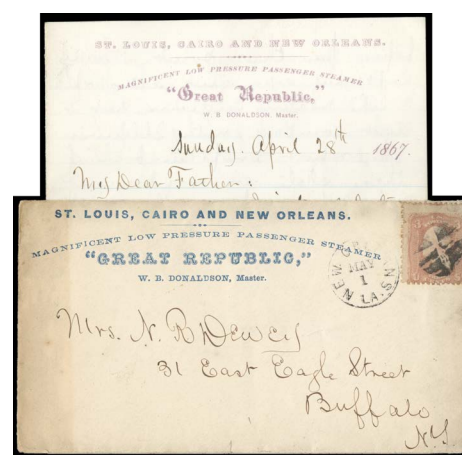 ST. LOUIS, CAIRO AND NEW ORLEANS.
MAGNIFICENT LOW PRESSURE PASSENGER STEAMER
"Great Republic,"
W. B. DONALDSON, Master.
Sunday. April 28th 1867.
My Dear Father:
ST. LOUIS, CAIRO AND NEW ORLEANS.
MAGNIFICENT LOW PRESSURE PASSENGER STEAMER
"GREAT REPUBLIC,"
W. B. DONALDSON, Master.
NEW ORLEANS
MAY
1
LA.
Mrs. N. B Dewey
31 East Eagle Street
Buffalo
N.Y.